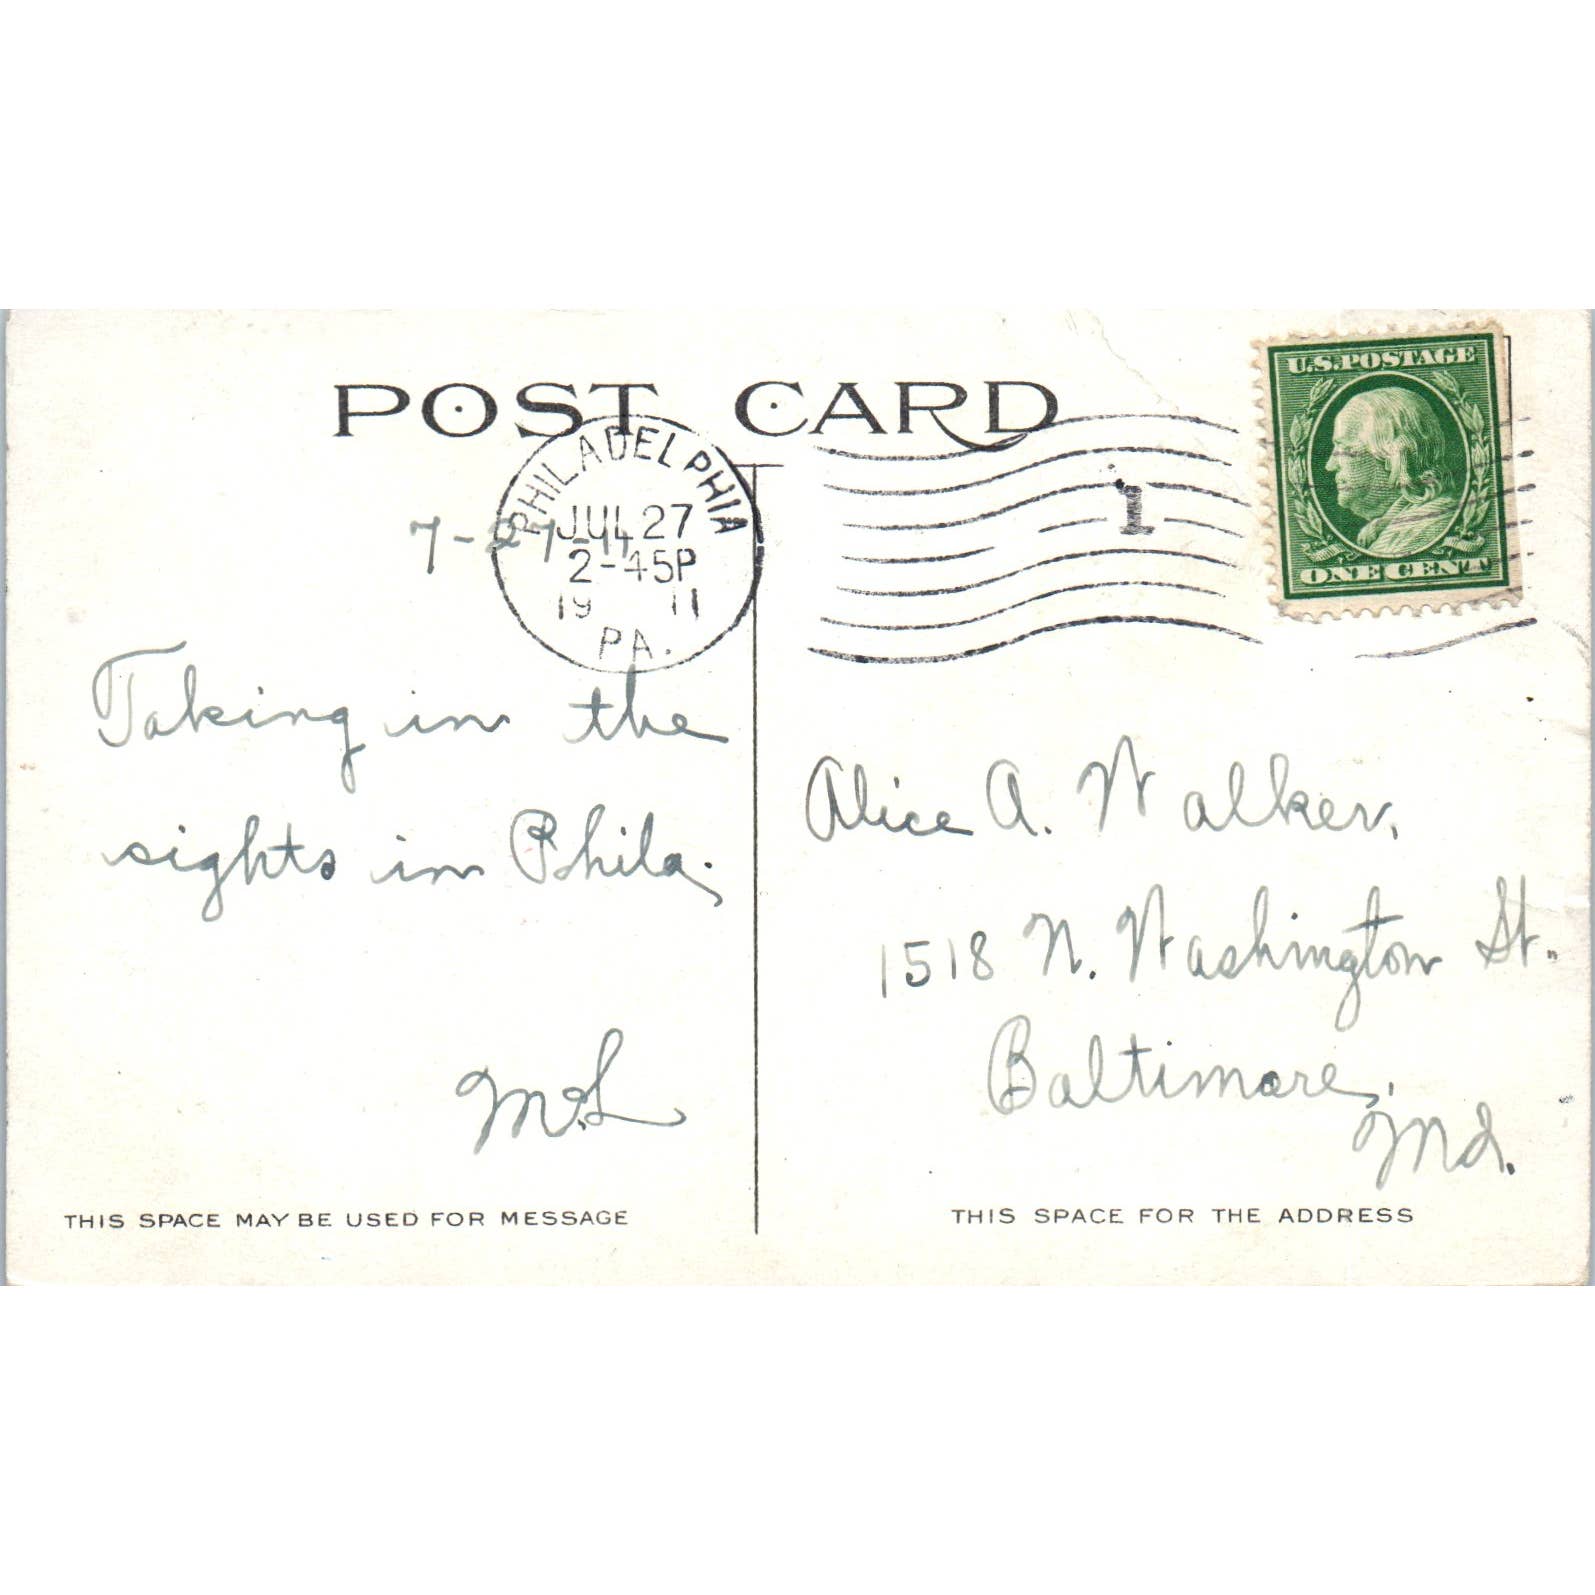 POST CARD
U.S. POSTAGE
ONE CENT
PHILADELPHIA
JUL 27
2-45P
19 11
PA.
1
7-27-11
Taking in the
sights in Phila.
M.L
THIS SPACE MAY BE USED FOR MESSAGE
Alice A. Walker,
1518 N. Washington St.
Baltimore,
Md.
THIS SPACE FOR THE ADDRESS